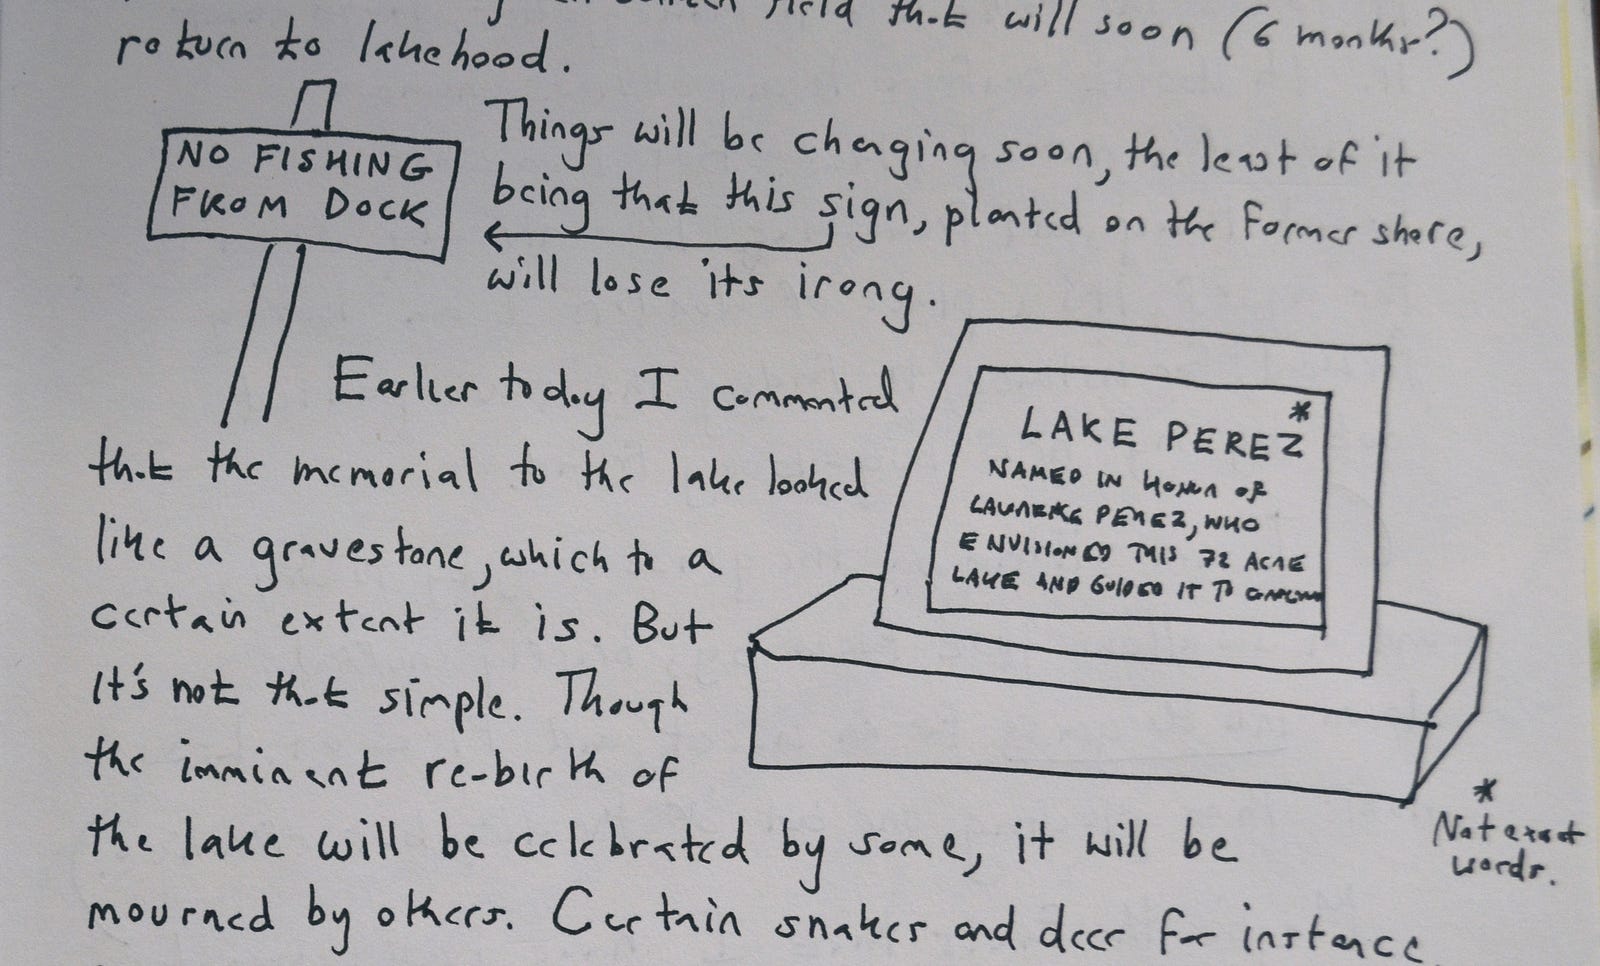 field that will soon (6 months?)
return to lakehood.
NO FISHING
FROM DOCK
Things will be changing soon, the least of it
being that this sign, planted on the former shore,
will lose its irony.
Earlier today I commented
that the memorial to the lake looked
like a gravestone, which to a
certain extent it is. But
it's not that simple. Though
the imminent re-birth of
the lake will be celebrated by some, it will be
mourned by others. Certain snakes and deer for instance
LAKE PEREZ*
NAMED IN HONOR OF
PEREZ, WHO
ENVISIONED THIS 72 ACRE
LAKE AND GUIDED IT TO
*
Not exact
words.